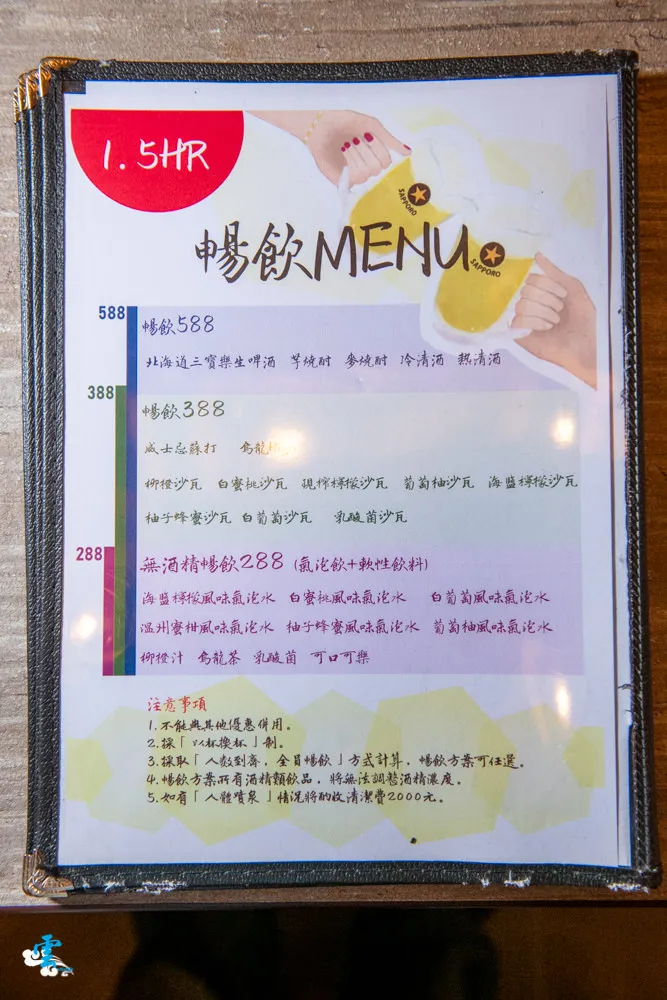 1.5HR
SAPPORO
SAPPORO
暢飲MENU
588
暢飲588
北海道三寶樂生啤酒 芋燒酎 麥燒酎 冷清酒 熱清酒
388
暢飲388
威士忌蘇打 烏龍
柳橙沙瓦 白蜜桃沙瓦 現榨檸檬沙瓦 葡萄柚沙瓦 海鹽檸檬沙瓦
柚子蜂蜜沙瓦 白葡萄沙瓦 乳酸菌沙瓦
288
無酒精暢飲288 (氣泡飲+軟性飲料)
海鹽檸檬風味氣泡水 白蜜桃風味氣泡水 白葡萄風味氣泡水
溫州蜜柑風味氣泡水 柚子蜂蜜風味氣泡水 葡萄柚風味氣泡水
柳橙汁 烏龍茶 乳酸菌 可口可樂
注意事項
1.不能與其他優惠併用。
2.採「以杯換杯」制。
3.採取「人數到齊,全員暢飲」方式計算,暢飲方案可任選。
4.暢飲方案所有酒精類飲品,將無法調整酒精濃度。
5.如有「人體噴泉」情況將酌收清潔費2000元。
雲